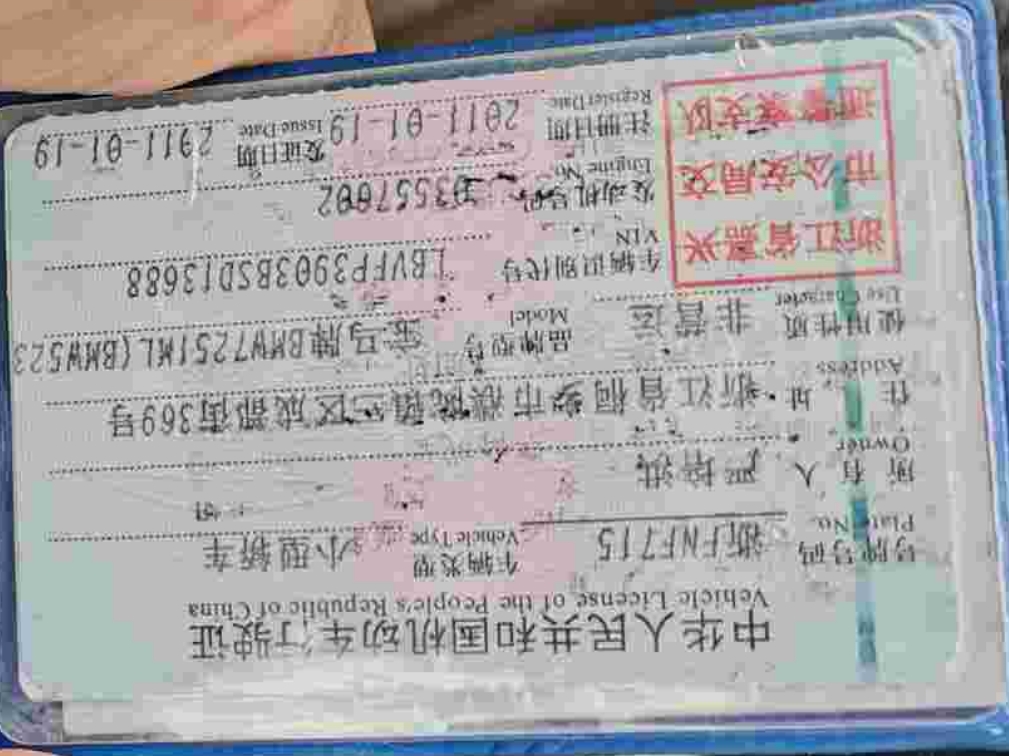 中华人民共和国机动车行驶证
Vehicle License of the People's Republic of China
号牌号码 浙FNF715 车辆类型 小型轿车
Plate No. Vehicle Type
所有人 严培洪
Owner
住址 浙江省桐乡市濮院镇 区成都街369号
Address
使用性质 非营运 品牌型号 宝马牌BMW7251ML(BMW523
Use Character Model
浙江省嘉兴
市公安局交
通警察支队
车辆识别代号 LBVFP3903BSD13688
VIN
发动机号码 03557002
Engine No.
注册日期 2011-01-19 发证日期 2011-01-19
Register Date Issue Date